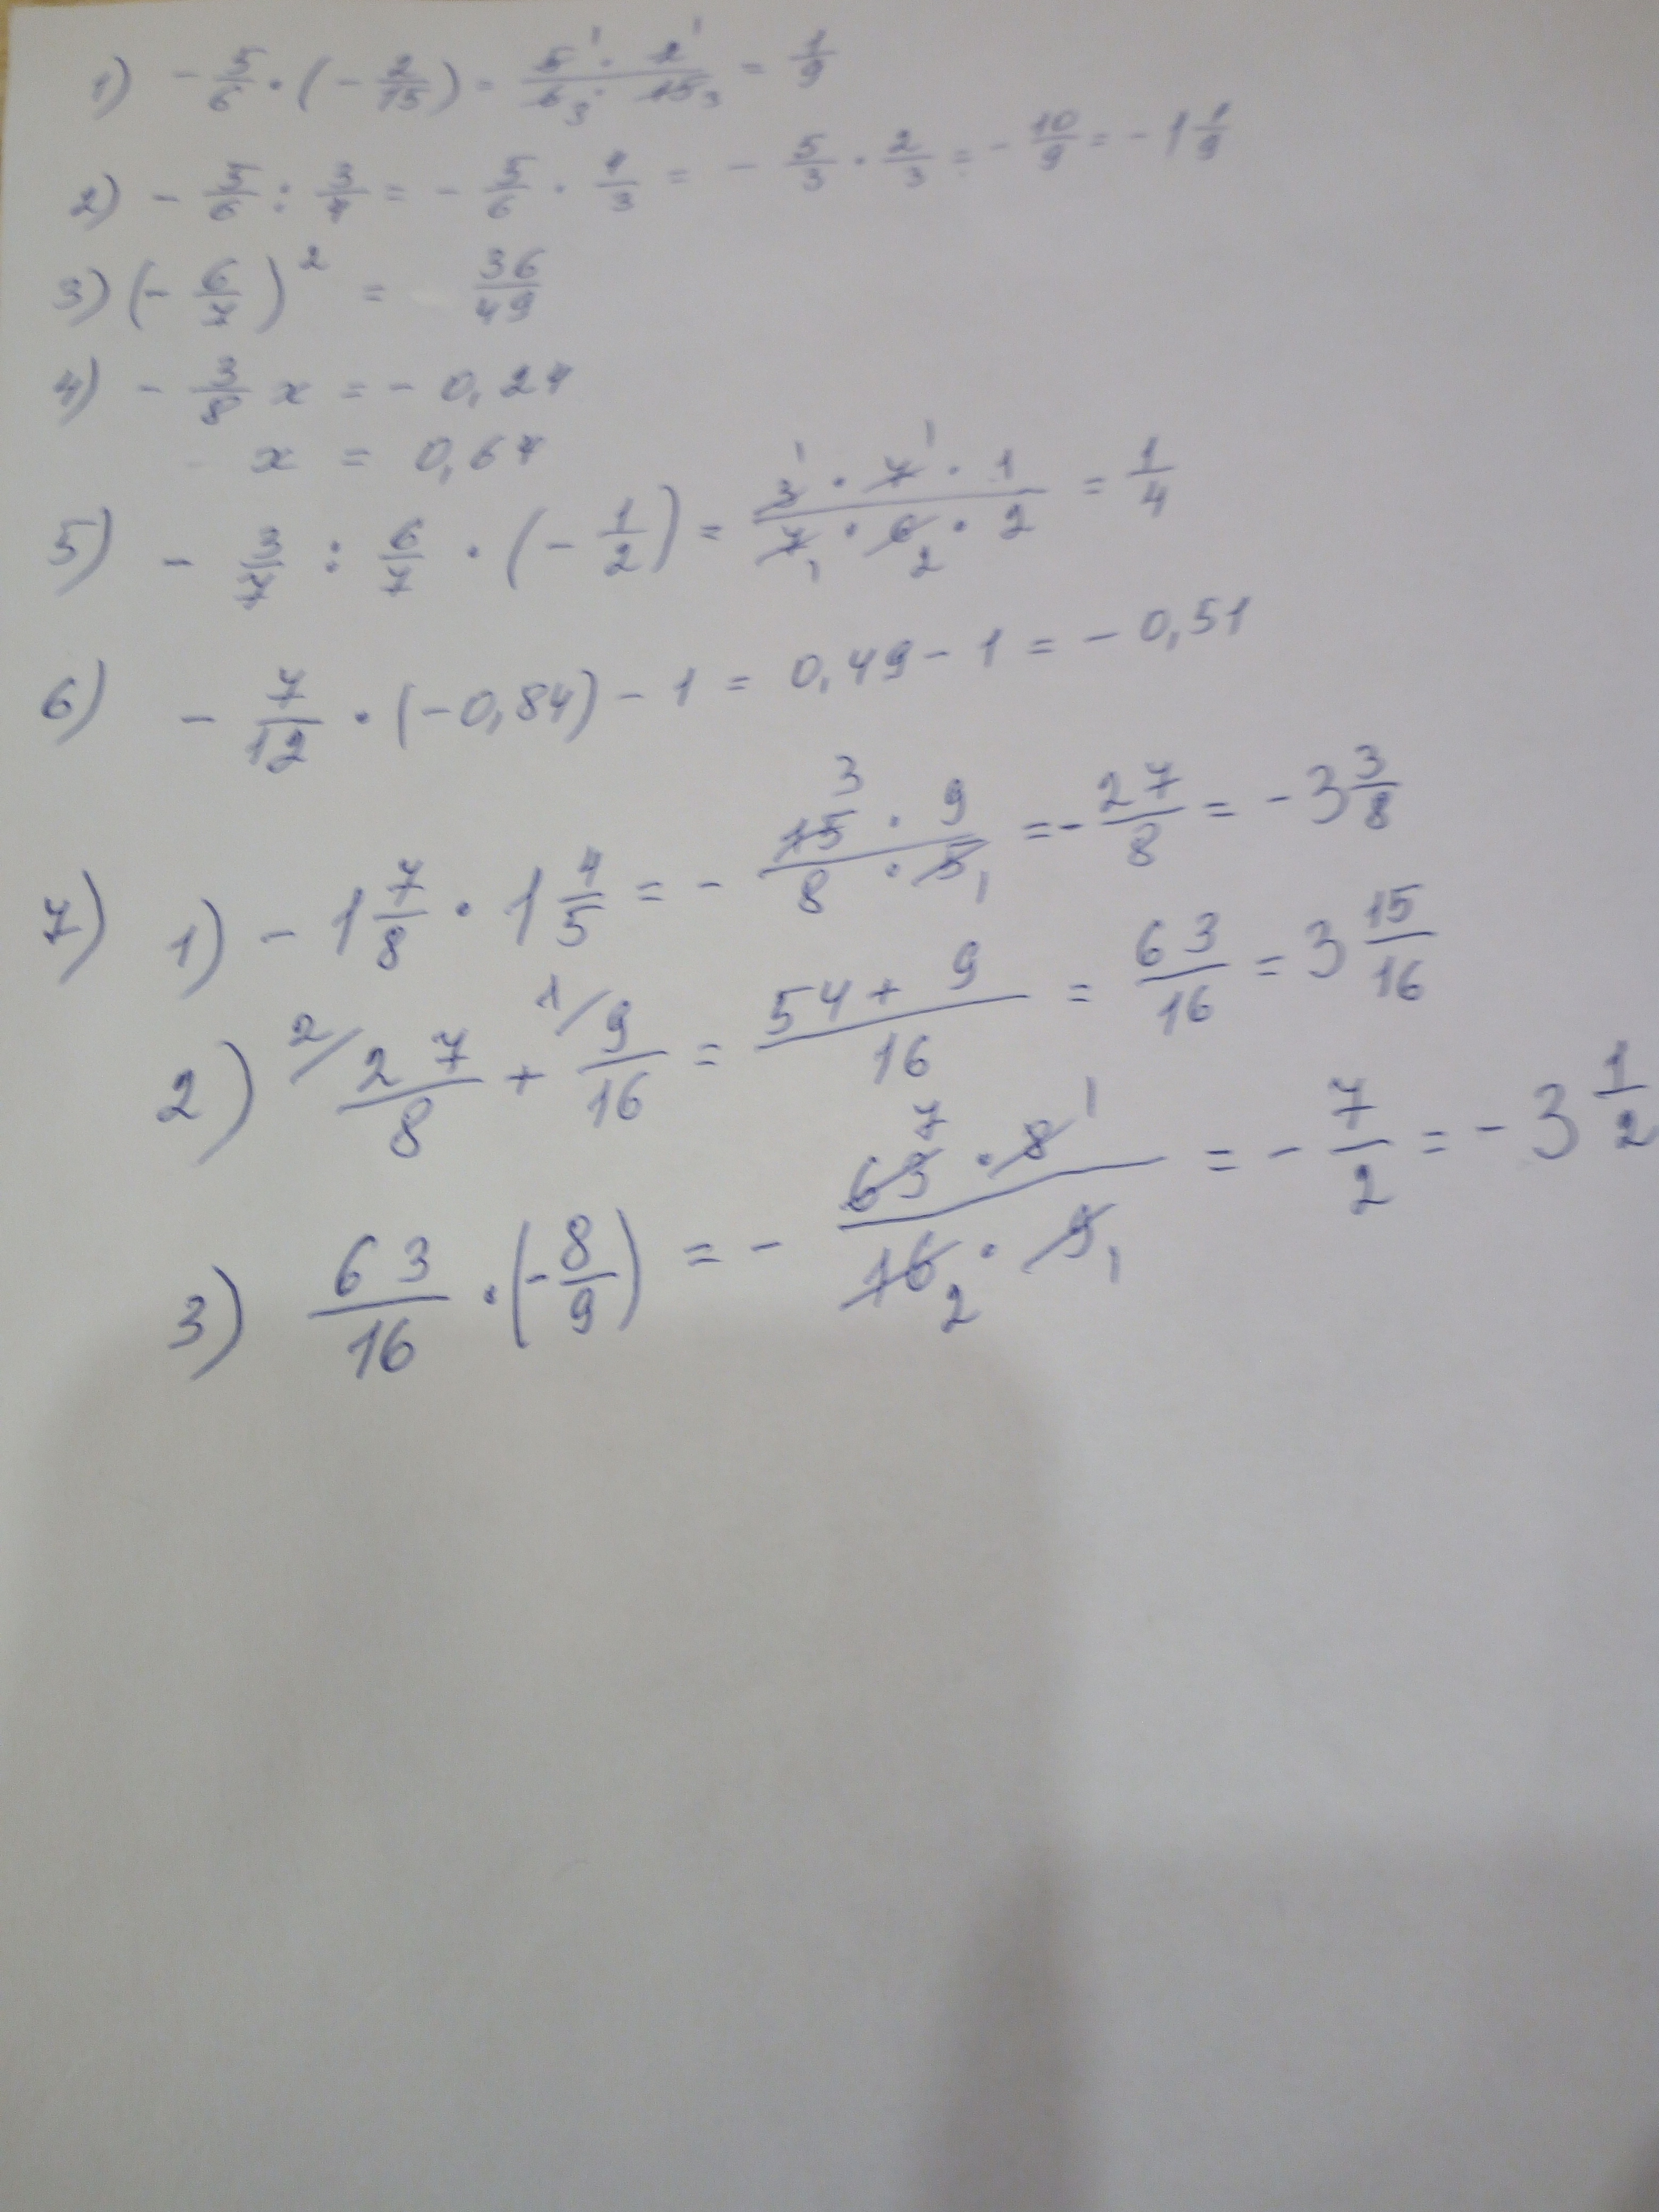 1) - 5/6 · (- 2/15) = 5¹ · 2¹ / 6₃ · 15₃ = 1/9
2) - 5/6 : 3/4 = - 5/6 · 4/3 = - 5/3 · 2/3 = - 10/9 = - 1 1/9
3) (- 6/7)² = 36/49
4) - 3/8 x = - 0,24
x = 0,64
5) - 3/7 : 6/7 · (- 1/2) = 3¹ · 7¹ · 1 / 7₁ · 6₂ · 2 = 1/4
6) - 7/12 · (-0,84) - 1 = 0,49 - 1 = - 0,51
7) 1) - 1 7/8 · 1 4/5 = - 15³ · 9 / 8 · 5₁ = - 27/8 = - 3 3/8
2) 2/ 27/8 + 1/ 9/16 = 54 + 9 / 16 = 63/16 = 3 15/16
3) 63/16 · (- 8/9) = - 63⁷ · 8¹ / 16₂ · 9₁ = - 7/2 = - 3 1/2